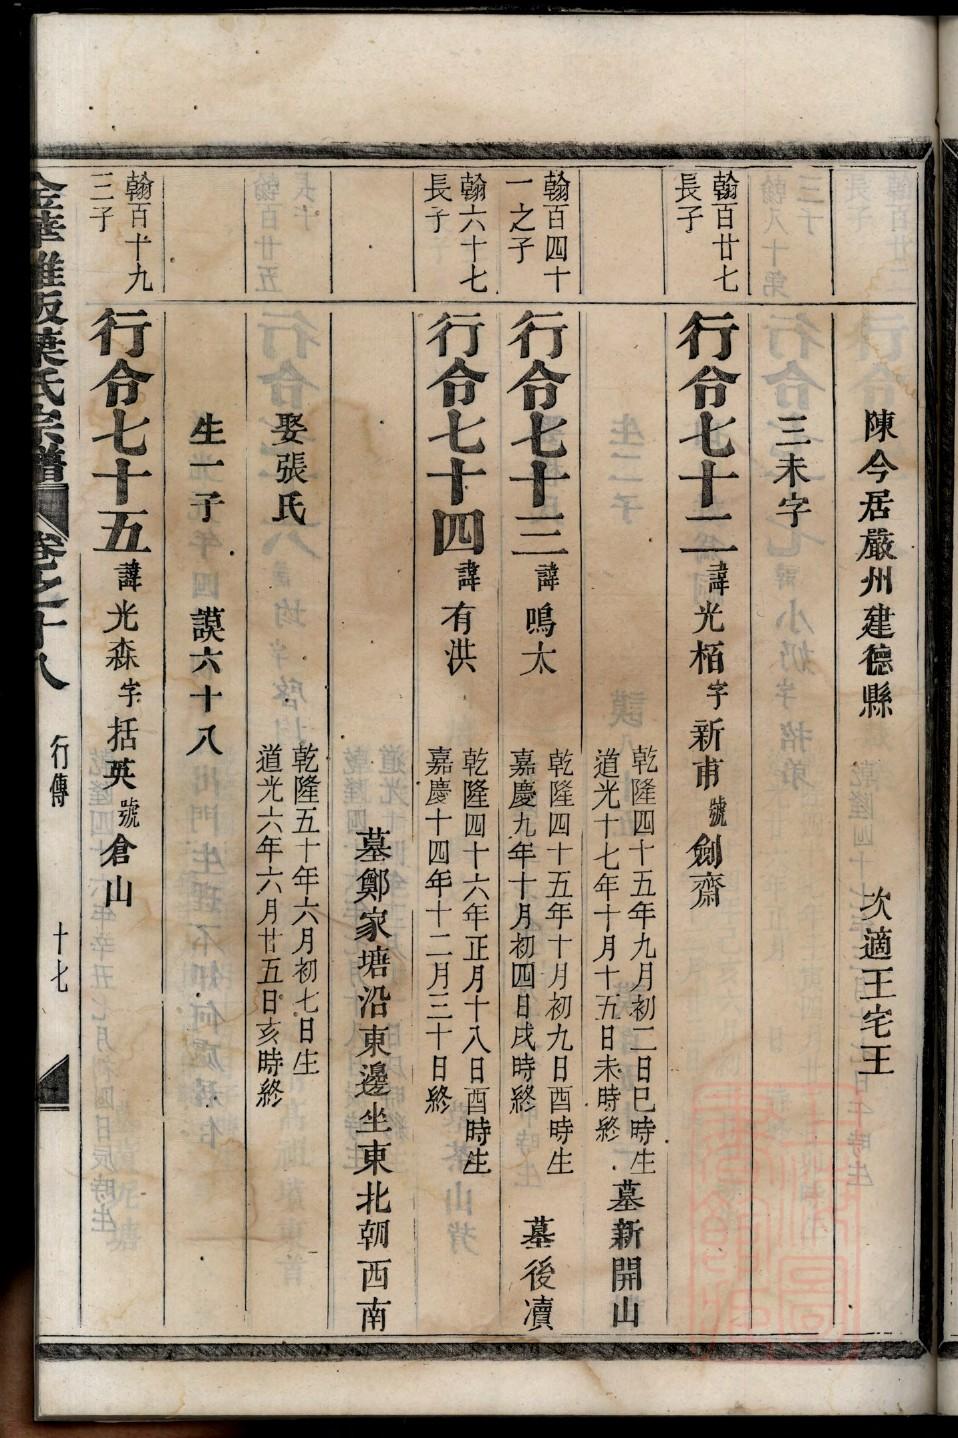 陳今居嚴州建德縣 次適王宅王
三未字
翰百廿七
長子
行令七十二諱光栢字新甫號劍齋
乾隆四十五年九月初二日巳時生
道光十七年十月十五日未時終
墓新開山
翰百四十
一之子
行令七十三諱鳴太
乾隆四十五年十月初九日酉時生
嘉慶九年十月初四日戌時終
墓後凟
翰六十七
長子
行令七十四諱有洪
乾隆四十六年正月十八日酉時生
嘉慶十四年十二月三十日終
墓鄭家塘沿東邊坐東北朝西南
娶張氏
乾隆五十年六月初七日生
道光六年六月廿五日亥時終
生一子 謨六十八
翰百十九
三子
行令七十五諱光森字括英號倉山
葉氏宗譜 卷之十八 行傳 十七